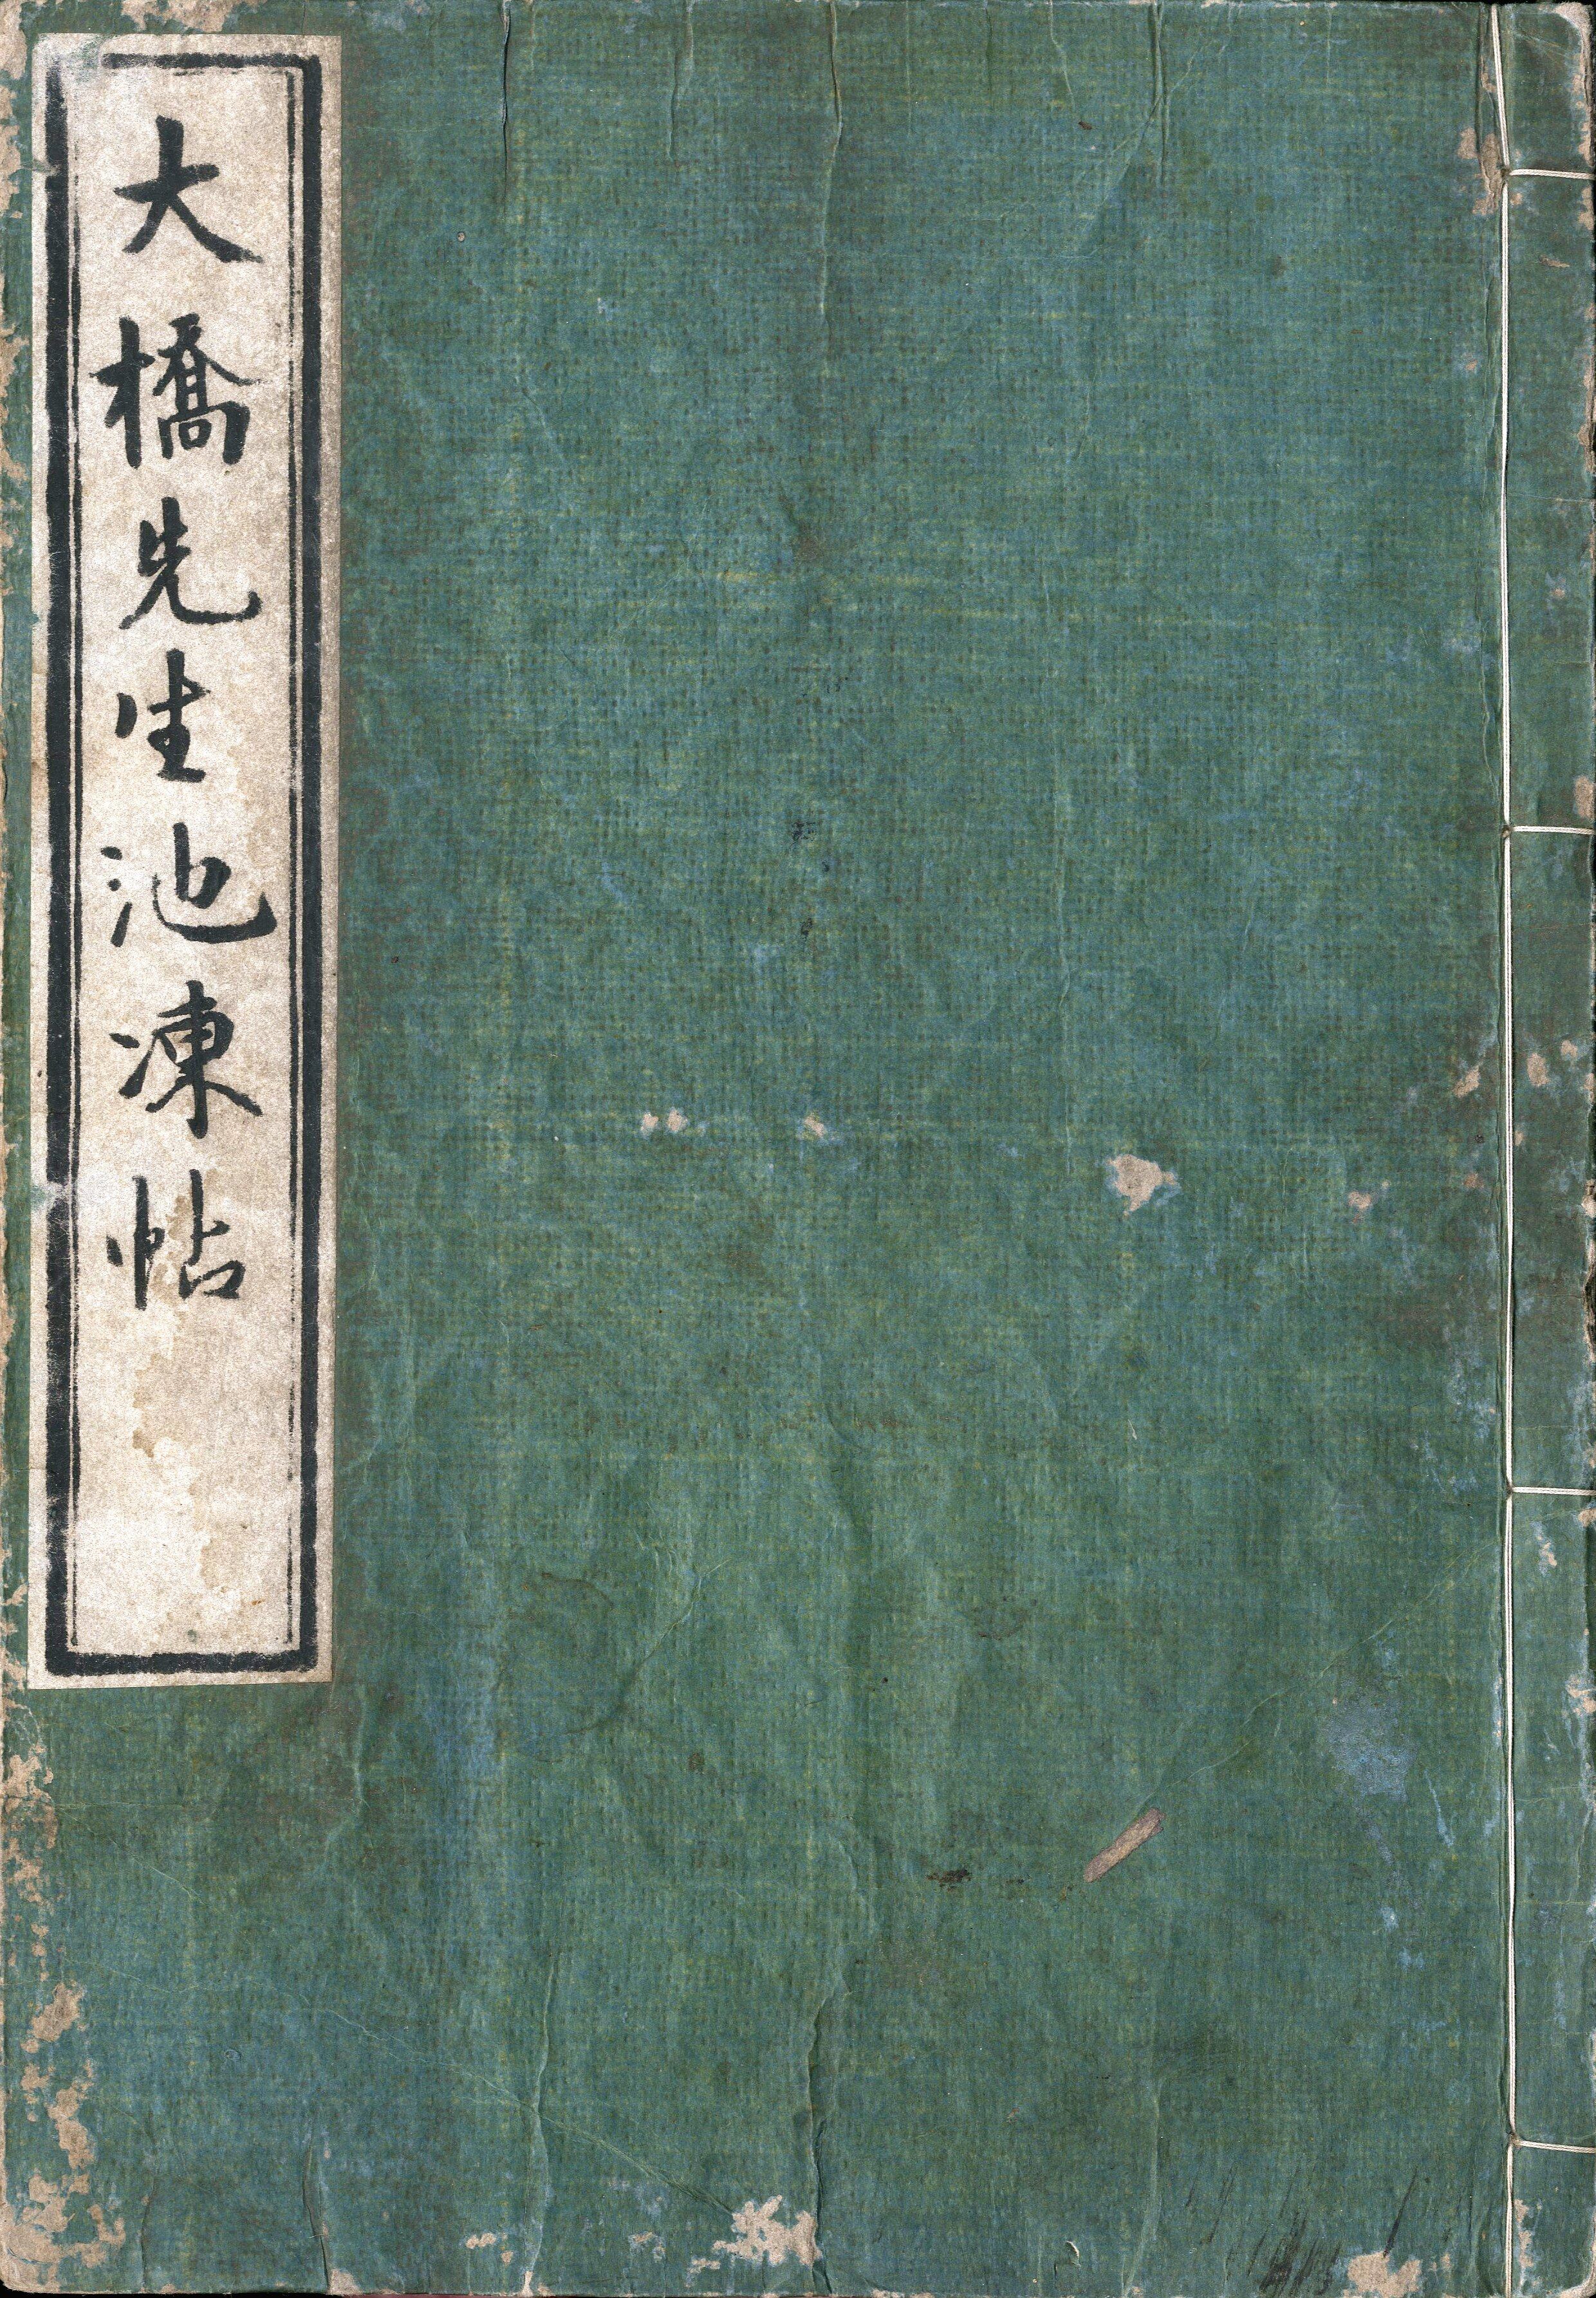 大橋先生池凍帖